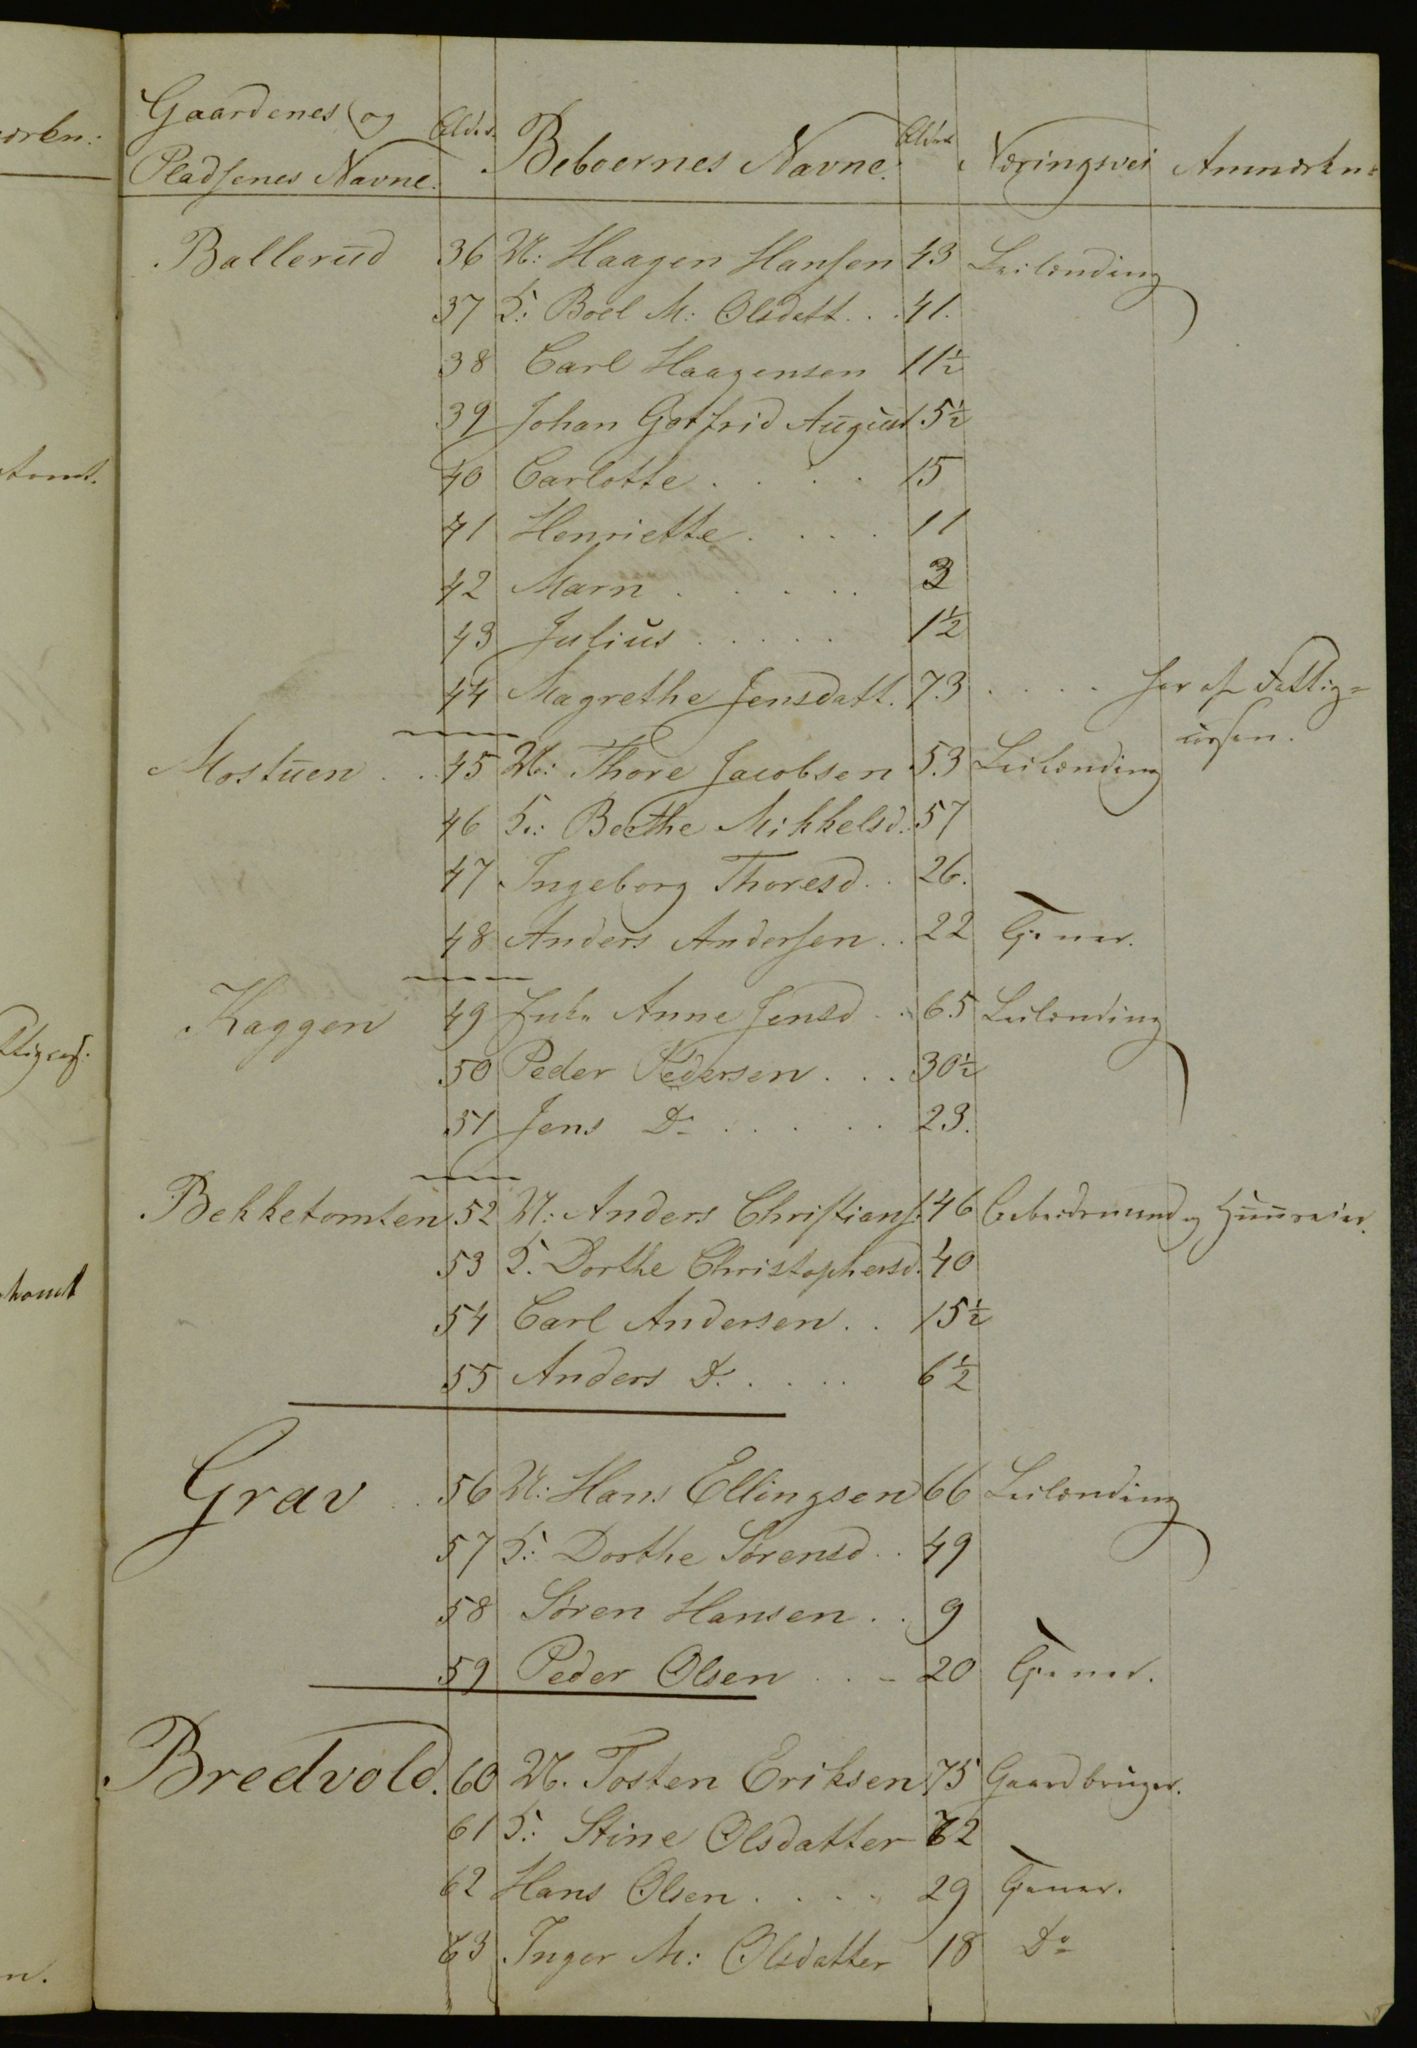 Gaardenes og Pladsenes Navne. Alder. Beboernes Navne. Alder Næringsvei Anmærkn:
Ballerud 36 M: Haagen Hansen 43 Leilænding
37 K: Boel M: Olsdatt. . . 41.
38 Carl Haagensen 11½
39 Johan Gotfrid August 5½
40 Carlotte . . . . 15
41 Henriette . . . . 11
42 Marn . . . . . 3
43 Julius . . . . . 1½
44 Magrethe Jensdatt. 73 . . . . har af Fattig=
Mostuen . . 45 M: Thore Jacobsen 53 Leilænding
46 K: Berthe Mikkelsd. 57
47 Ingeborg Thoresd . . 26.
48 Anders Andersen . . 22 Tjener.
Kaggen 49 Enke Anne Jensd . . 65 Leilænding
50 Peder Pedersen . . . 30½
51 Jens Do . . . . . 23.
Bekketomten 52 M: Anders Christians. 46 Arbeidsmand og Huuseier.
53 K. Dorthe Christophersd. 40
54 Carl Andersen . . 15½
55 Anders Do . . . . 6½
Grav . . 56 M: Hans Ellingsen 66 Leilænding
57 K: Dorthe Sørensd . . 49
58 Søren Hansen . . 9
59 Peder Olsen . . - 20 Tjener.
Bredvold. 60 M. Tosten Eriksen 75 Gaardbruger.
61 K: Stine Olsdatter 62
62 Hans Olsen . . . . 29 Tjener.
63 Inger M: Olsdatter 18 Do